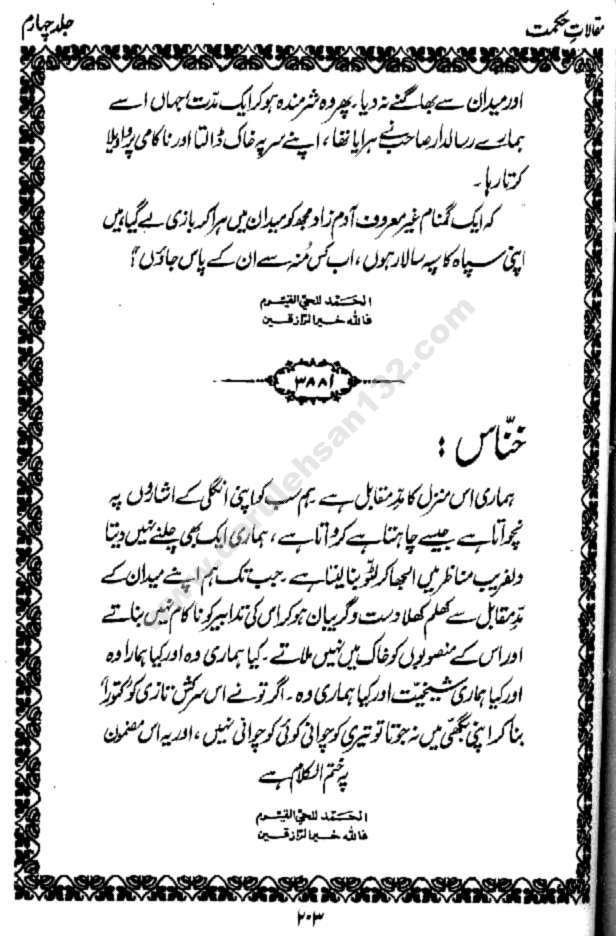 مقالاتِ حکمت
جلد چہارم
اور میدان سے بھاگنے نہ دیا۔ پھر وہ شرمندہ ہو کر ایک مدّت! جہاں اسے
ہمارے رسالدار صاحب نے ہرایا تھا، اپنے سر پہ خاک ڈالتا اور ناکامی پر واویلا
کرتا رہا۔
کہ ایک گمنام غیر معروف آدم زاد مجھ کو میدان میں ہرا کر بازی لے گیا، میں
اپنی سپاہ کا سپہ سالار ہوں، اب کس مُنہ سے ان کے پاس جاؤں؟
الحَمد للحیّ القیّوم
فاللہ خیر الرّازقین
۳۸۸۱
خنّاس :
ہماری اس منزل کا مدِّ مقابل ہے۔ ہم سب کو اپنی انگلی کے اشاروں پہ
نچواتا ہے جیسے چاہتا ہے کرواتا ہے، ہماری ایک بھی چلنے نہیں دیتا
دلفریب مناظر میں الجھا کر لٹّو بنا لیتا ہے۔ جب تک ہم اپنے میدان کے
مدِّ مقابل سے کھلم کھلا دست و گریبان ہو کر اس کی تدابیر کو ناکام نہیں بناتے
اور اس کے منصوبوں کو خاک میں نہیں ملاتے۔ کیا ہماری وہ اور کیا ہمارا وہ
اور کیا ہماری شیخیّت اور کیا ہماری وہ۔ اگر تو نے اس سرکش تازی کو کتورا
بنا کر اپنی بگھّی میں نہ جوتا تو تیری کوچوانی کوئی کوچوانی نہیں، اور یہ اس مضمون
پہ ختم الکلام ہے
الحَمد للحیّ القیّوم
فاللہ خیر الرّازقین
۲۰۳
www.darulehsan132.com